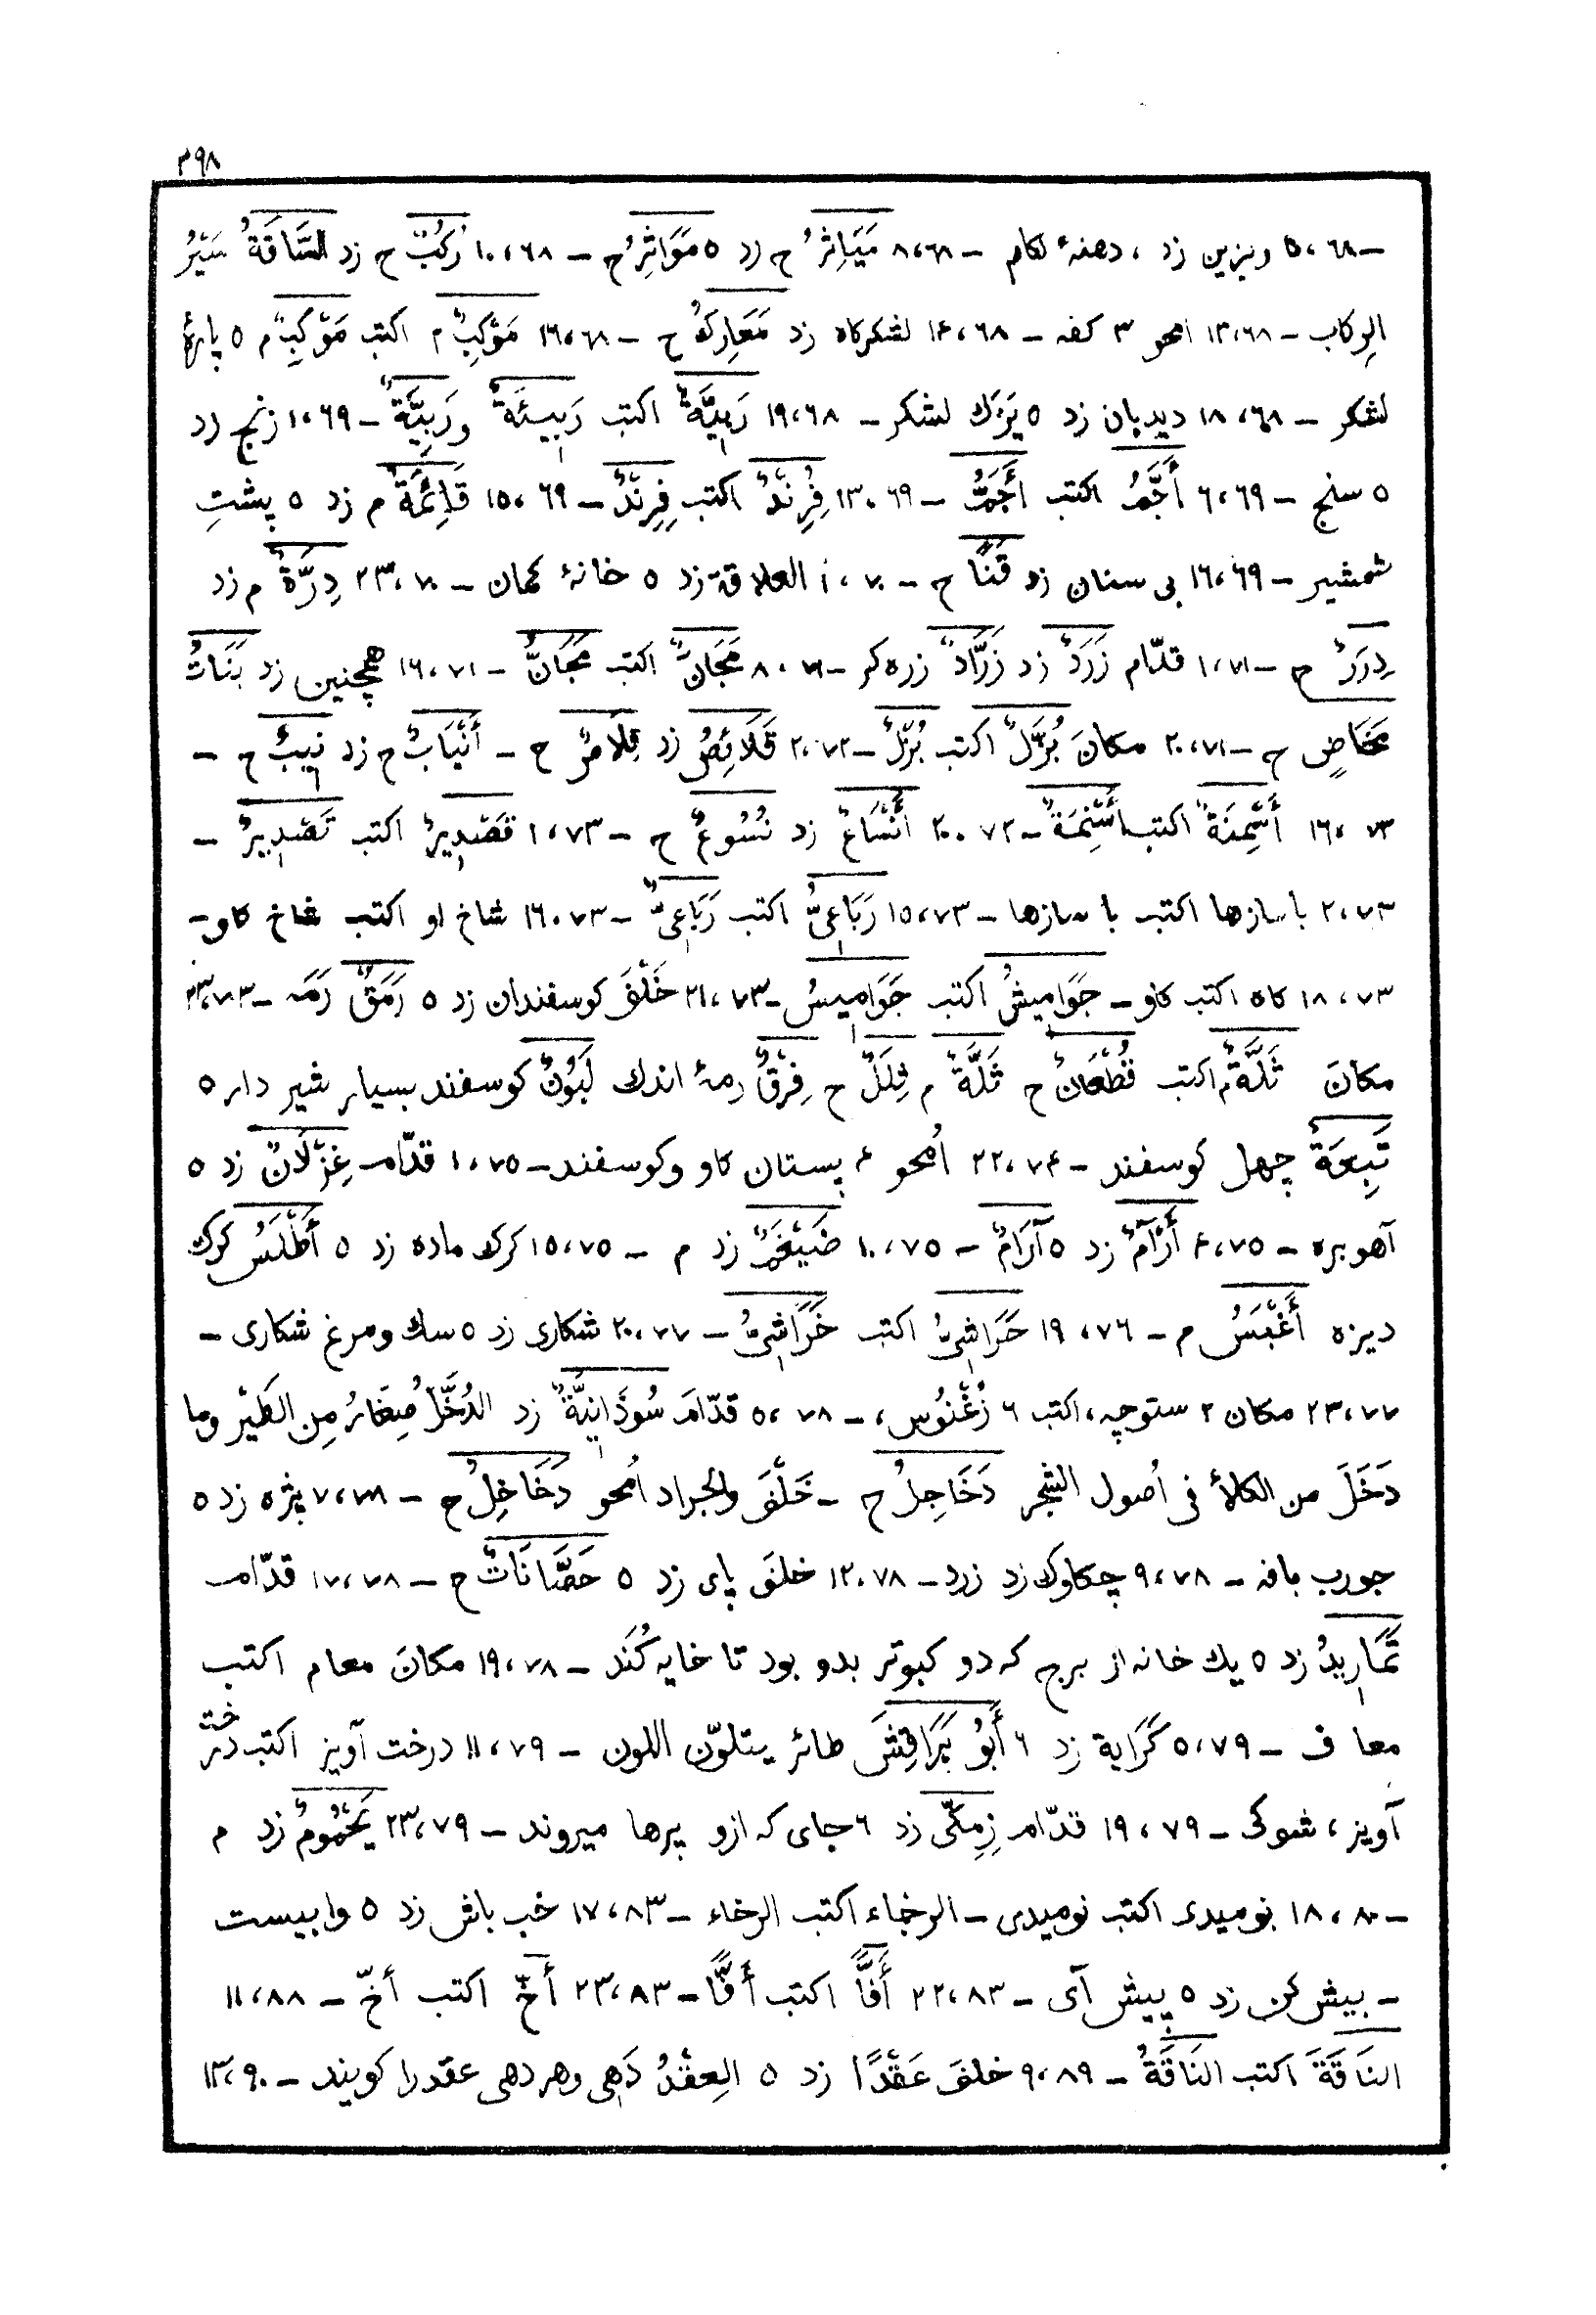 ۳۹۸
ـ ۵،۶۸ وبزین زد ، دهنهٔ لکام ـ ۸،۶۸ مَيَاثِرُ ح زد ۵ مَوَاثِرُ ح ـ ۱۰،۶۸ رُكُبٌ ح زد السَّاقَةُ سَيْرُ
الرِكاب ـ ۱۳،۶۸ امحو ۳ كفه ـ ۱۴،۶۸ لشكركاه زد مَعَارِكُ ح ـ ۱۶،۶۸ مَوْكِبٌ م اكتب مَوْكِبٌ م ۵ پارهٔ
لشكر ـ ۱۸،۶۸ ديدبان زد ۵ يَزَك لشكر ـ ۱۹،۶۸ رَبِيَّةٌ اكتب رَبِيئَةٌ ورَبِيَّةٌ ـ ۱،۶۹ زنج زد
۵ سنج ـ ۶،۶۹ أَجَّمُ اكتب أَجَمُّ ـ ۱۳،۶۹ فِرِنْدٌ اكتب فِرِنْدٌ ـ ۱۵،۶۹ قَائِمَةٌ م زد ۵ پشتِ
شمشير ـ ۱۶،۶۹ بى سنان زد قَنًا ح ـ ۱،۷۰ العلاقة زد ۵ خانهٔ كمان ـ ۲۳،۷۰ دِرَّةٌ م زد
دِرَرٌ ح ـ ۱،۷۱ قدّام زَرَدٌ زد زَرَّادٌ زره‌كر ـ ۸،۷۱ مَجَانٌ اكتب مَجَانُّ ـ ۱۶،۷۱ همچنين زد بَنَاتُ
مَخَاضٍ ح ـ ۲۰،۷۱ مكانَ بُزَّلٌ اكتب بُزْلٌ ـ ۲،۷۲ قَلَائِصُ زد قِلَاصٌ ح ـ أَنْيَابٌ ح زد نِيبٌ ح ـ
۱۶،۷۲ أَسْمِنَةٌ اكتب أَسْنِمَةٌ ـ ۲۰،۷۲ أَنْسَاعٌ زد نُسُوعٌ ح ـ ۱،۷۳ قَصْدِيرٌ اكتب تَصْدِيرٌ ـ
۲،۷۳ باسازها اكتب با سازها ـ ۱۵،۷۳ رَبَاعِىٌّ اكتب رَبَاعِىٌّ ـ ۱۶،۷۳ شاخ او اكتب شاخ كاو ـ
۱۸،۷۳ كاه اكتب كاو ـ جَوَامِيشُ اكتب جَوَامِيسُ ـ ۲۱،۷۳ خَلْفَ كوسفندان زد ۵ رَمَقٌ رَمَه ـ ۲۳،۷۳
مكانَ ثَلَّةٌ م اكتب قُطْعَانٌ ح ثَلَّةٌ م ثِلَلٌ ح فِرْقٌ رمهٔ اندك لَبُونٌ كوسفند بسيار شير دار ۵
تَبِعَةٌ چهل كوسفند ـ ۲۲،۷۴ اُمحو ۴ پستان كاو وكوسفند ـ ۱،۷۵ قدّام غِزْلَانٌ زد ۵
آهو بره ـ ۴،۷۵ أَرْآمٌ زد ۵ آرَامٌ ـ ۱۰،۷۵ ضَيْغَمٌ زد م ـ ۱۵،۷۵ كرك ماده زد ۵ أَطْلَسُ كرك
ديزه أَغْبَسُ م ـ ۱۹،۷۶ حَرَاشِىُّ اكتب خَرَاشِىُّ ـ ۲۰،۷۷ شكارى زد ۵ سك ومرغ شكارى ـ
۲۳،۷۷ مكان ۲ ستوچه، اكتب ۶ زُغْنُوس، ـ ۵،۷۸ قدّامَ سُوذَانِيَّةٌ زد الدُخَّلُ صِغَارُ مِن الطَيْر وما
دَخَلَ من الكلأ فى اُصول الشجر دَخَاجِلُ ح ـ خَلْفَ والجراد اُمحو دَخَاخِلُ ح ـ ۷،۷۸ پژه زد ۵
جورب بافه ـ ۹،۷۸ چكاوك زد زرد ـ ۱۲،۷۸ خلفَ پاى زد ۵ حَصَّانَاتٌ ح ـ ۱۷،۷۸ قدّام
تَمَارِيدُ زد ۵ يك خانه از برج كه دو كبوتر بدو بود تا خايه كُنَد ـ ۱۹،۷۸ مكانَ معام اكتب
معا ف ـ ۵،۷۹ گَرَاية زد ۶ أَبُو بَرَاقِشَ طائر يتلوّن اللون ـ ۱۱،۷۹ درخت آويز اكتب درخت
آويز ، شوكى ـ ۱۹،۷۹ قدّام زِمِكّى زد ۶ جاى كه ازو پرها ميروند ـ ۲۳،۷۹ يَحْمُومٌ زد م
ـ ۱۸،۸۰ بوميدى اكتب نوميدى ـ الرخماء اكتب الرخاء ـ ۱۷،۸۳ خب باش زد ۵ وا بيست
ـ بيش كن زد ۵ پيش آى ـ ۲۲،۸۳ أَفًّا اكتب أُفًّا ـ ۲۳،۸۳ أَخّ اكتب أخّ ـ ۱۱،۸۸
النَاقَةَ اكتب النَاقَةُ ـ ۹،۸۹ خلفَ عَقْدًا زد ۵ العِقْدُ دَهى وهر دهى عقد را كويند ـ ۱۳،۹۰